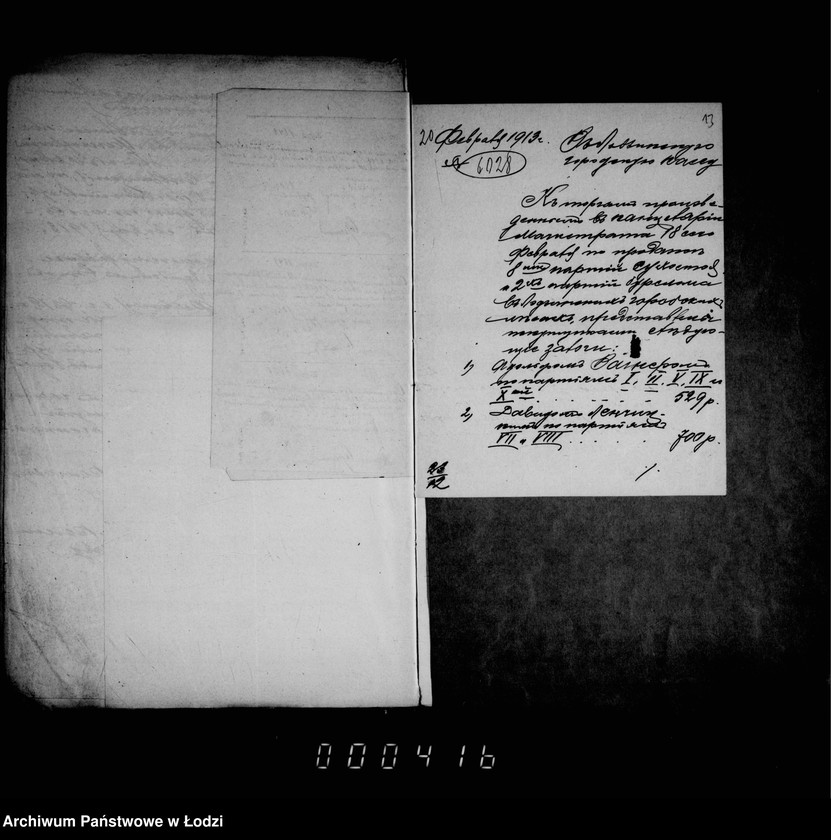 13
20 Февраля 1913 г.
№ 6028
Въ Лодзинскую
городскую кассу
Къ торгамъ произве-
деннымъ въ канцеляріи
Магистрата 18 сего
Февраля по продажѣ
8ми партій сухостоя
и 2хъ партій бурелома
въ Лодзинскихъ городскихъ
лѣсахъ, представлены
покупщиками слѣдую-
щіе залоги:
1) Адольфомъ Вагнеромъ
по партіямъ I, II, V, IX и
X ой 529 р.
2) Давидомъ
по партіямъ
VII и VIII 700 р.
23
12
000416
Archiwum Państwowe w Łodzi